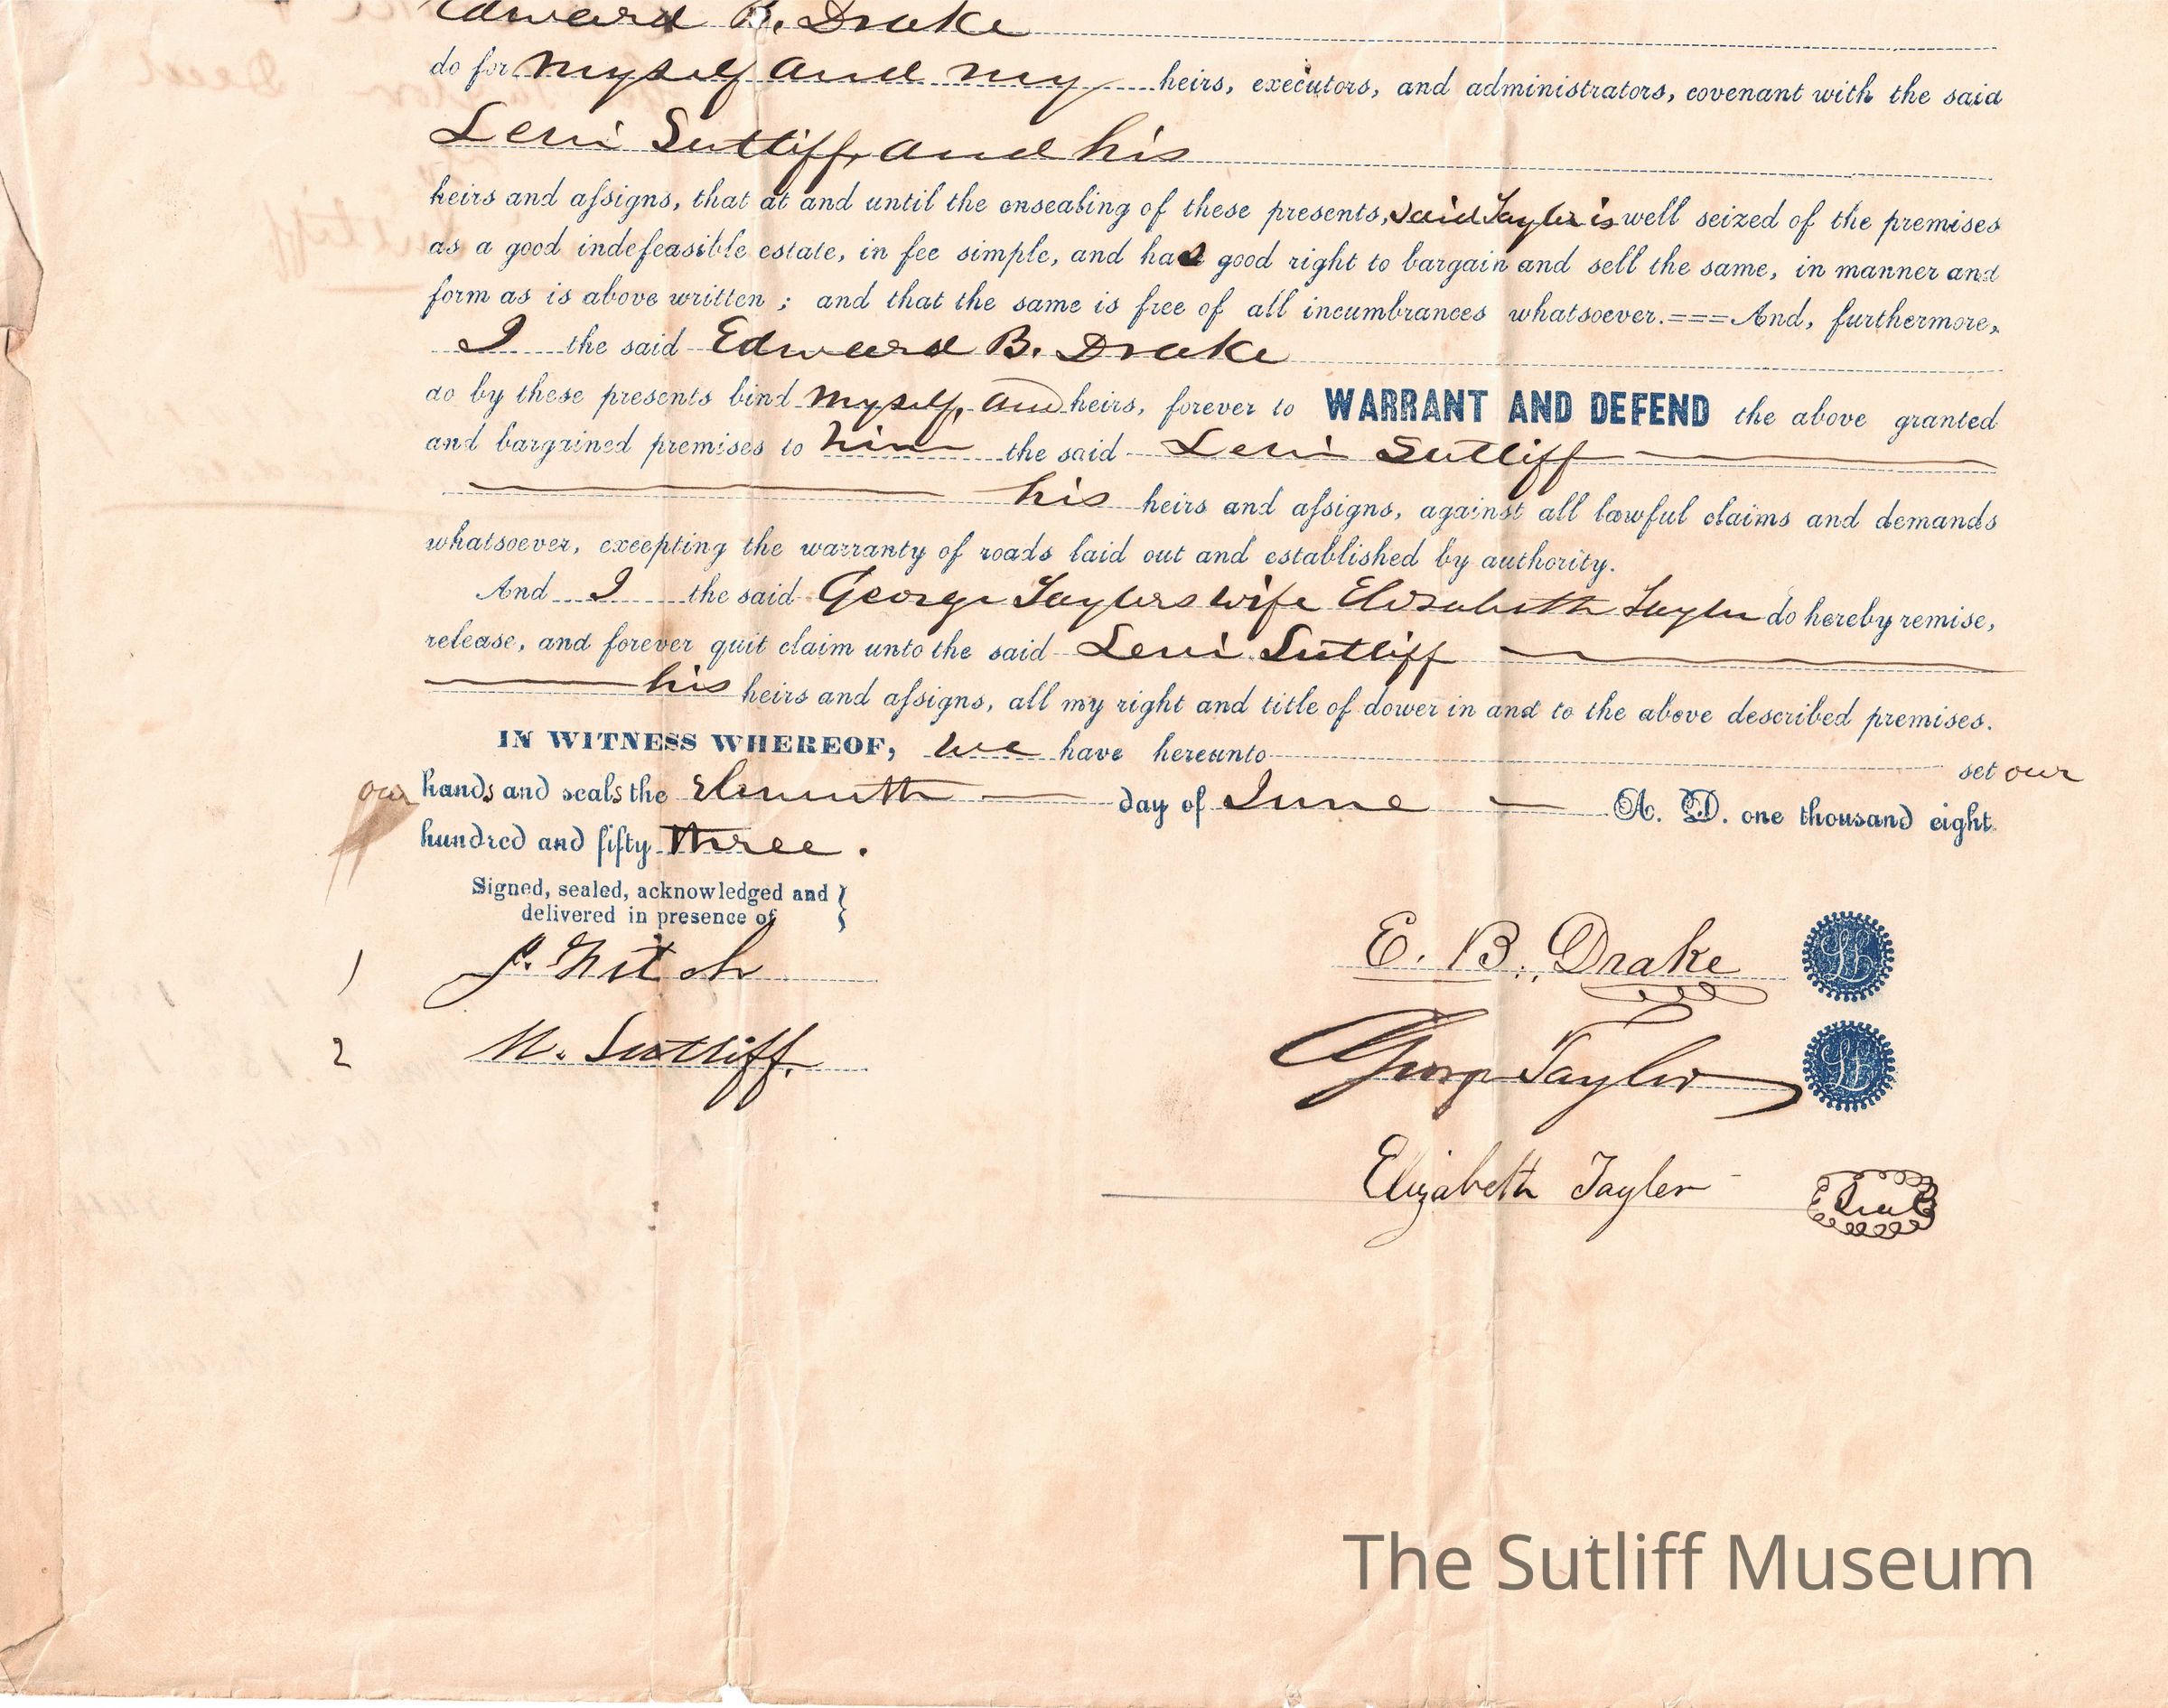 Edward B. Drake
do for myself and my heirs, executors, and administrators, covenant with the said
Levi Sutliff, and his
heirs and aſsigns, that at and until the ensealing of these presents, said Taylor is well seized of the premises
as a good indefeasible estate, in fee simple, and has good right to bargain and sell the same, in manner and
form as is above written ; and that the same is free of all incumbrances whatsoever.===And, furthermore,
I the said Edward B. Drake
do by these presents bind myself, and heirs, forever to WARRANT AND DEFEND the above granted
and bargained premises to him the said Levi Sutliff
his heirs and aſsigns, against all lawful claims and demands
whatsoever, excepting the warranty of roads laid out and established by authority.
And I the said George Taylors wife Elisabeth Taylor do hereby remise,
release, and forever quit claim unto the said Levi Sutliff
his heirs and aſsigns, all my right and title of dower in and to the above described premises.
IN WITNESS WHEREOF, we have hereunto set our
our hands and seals the Eleventh day of June A. D. one thousand eight
hundred and fifty three.
Signed, sealed, acknowledged and }
delivered in presence of
E. B. Drake
1
2 M. Sutliff.
George Taylor
Elizabeth Tayler Seal
The Sutliff Museum